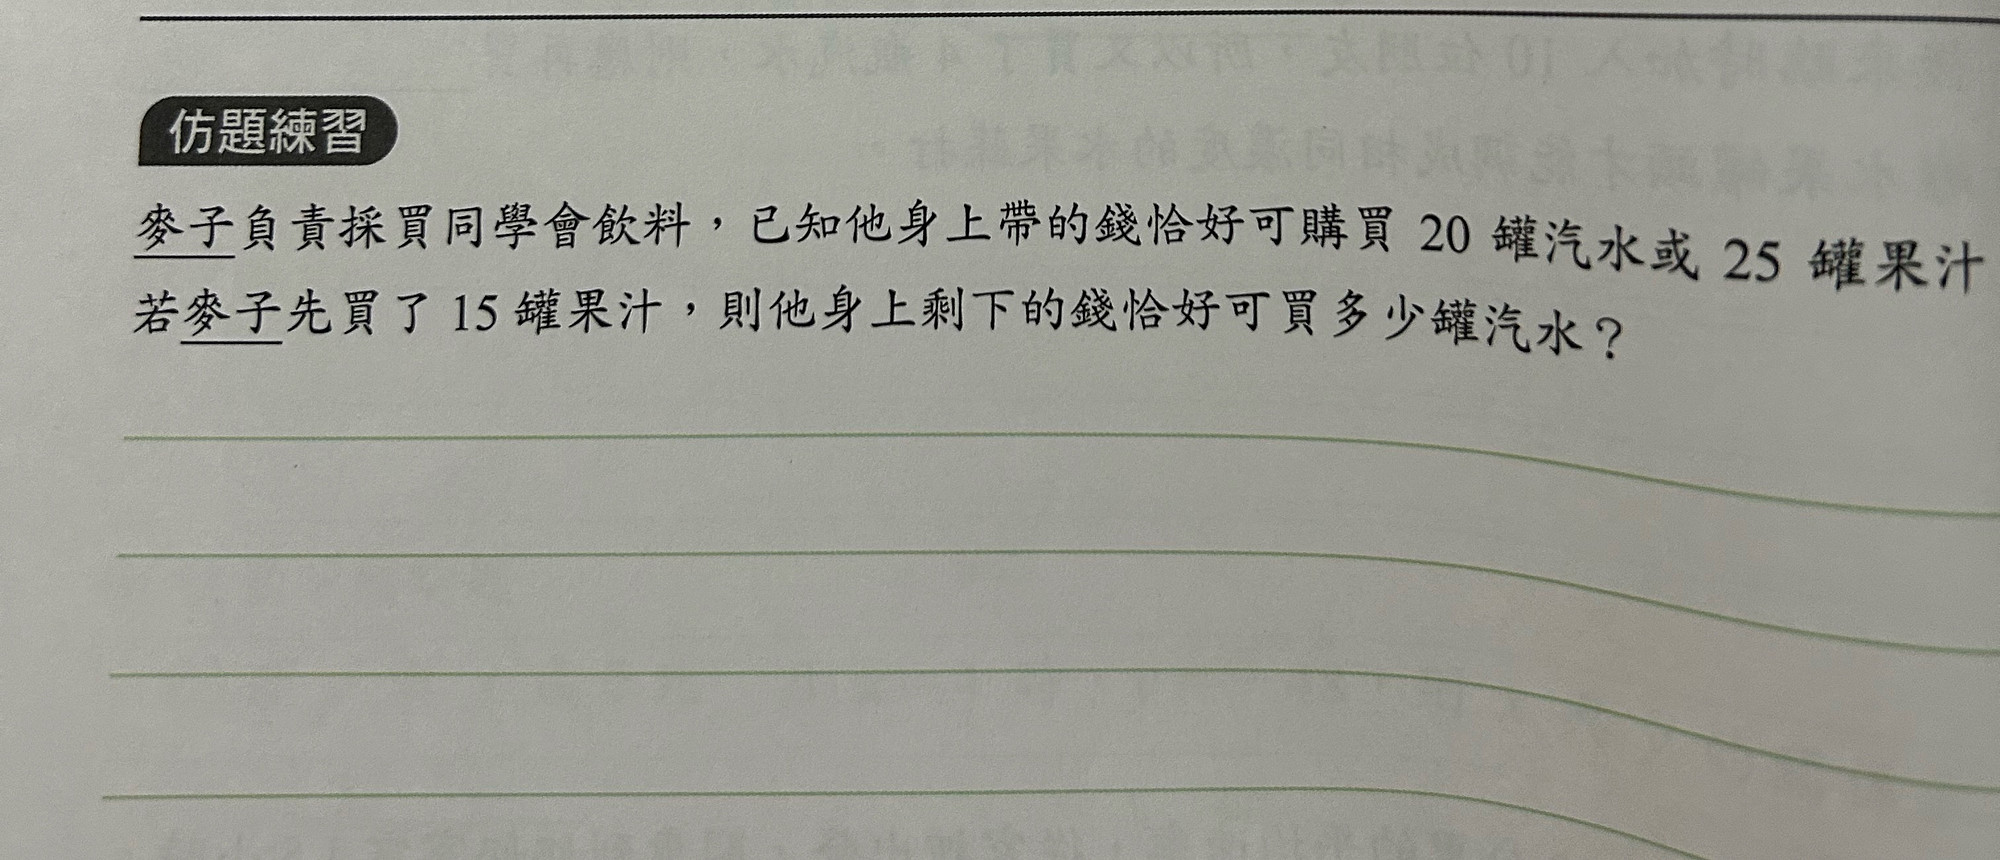 仿題練習
麥子負責採買同學會飲料，已知他身上帶的錢恰好可購買 20 罐汽水或 25 罐果汁
若麥子先買了 15 罐果汁，則他身上剩下的錢恰好可買多少罐汽水？